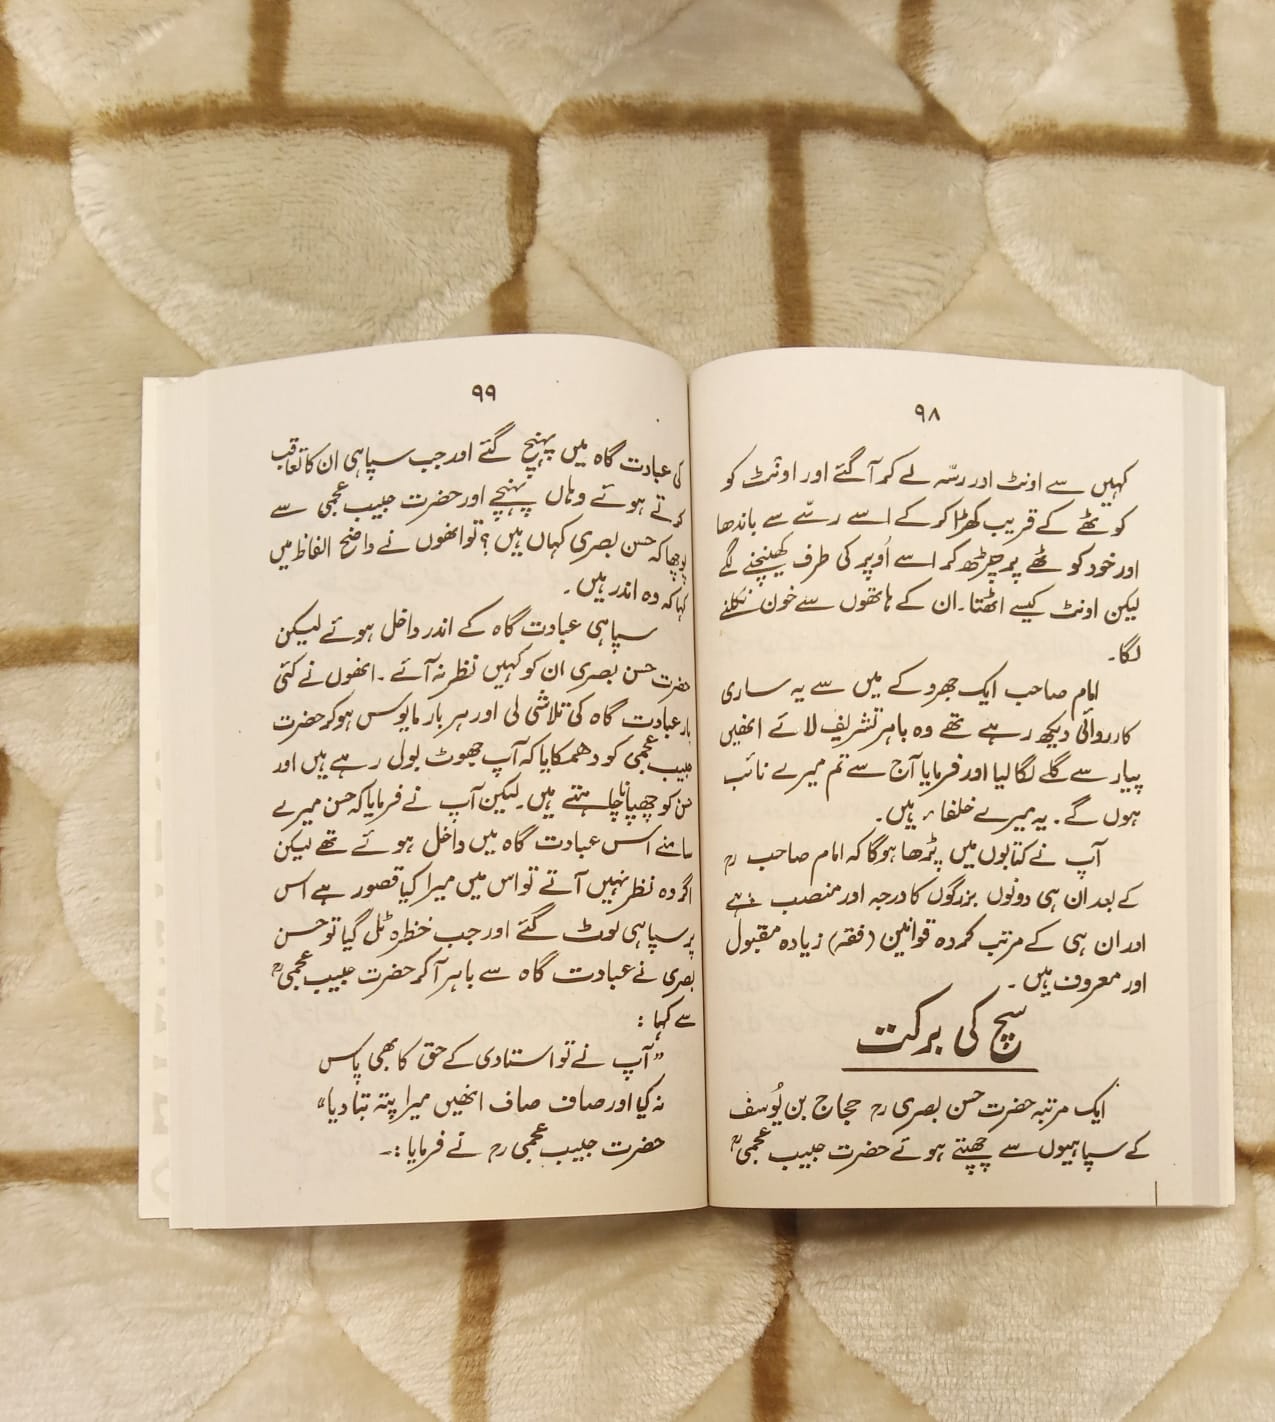 ۹۸
کہیں سے اونٹ اور رسّہ لے کر آ گئے اور اونٹ کو
کوٹھے کے قریب کھڑا کر کے اسے رسّے سے باندھا
اور خود کوٹھے پر چڑھ کر اسے اُوپر کی طرف کھینچنے لگے
لیکن اونٹ کیسے اٹھتا۔ ان کے ہاتھوں سے خون نکلنے
لگا۔
امام صاحب ایک جھروکے میں سے یہ ساری
کارروائی دیکھ رہے تھے وہ باہر تشریف لائے انھیں
پیار سے گلے لگا لیا اور فرمایا آج سے تم میرے نائب
ہوں گے۔ یہ میرے خلفاء ہیں۔
آپ نے کتابوں میں پڑھا ہوگا کہ امام صاحب رح
کے بعد ان ہی دونوں بزرگوں کا درجہ اور منصب ہے
اور ان ہی کے مرتب کردہ قوانین (فقہ) زیادہ مقبول
اور معروف ہیں۔
سچ کی برکت
ایک مرتبہ حضرت حسن بصری رح حجاج بن یُوسف
کے سپاہیوں سے چھپتے ہوئے حضرت حبیب عجمی رح
۹۹
کی عبادت گاہ میں پہنچ گئے اور جب سپاہی ان کا تعاقب
کرتے ہوئے وہاں پہنچے اور حضرت حبیب عجمی سے
پوچھا کہ حسن بصری کہاں ہیں؟ تو انھوں نے واضح الفاظ میں
کہا کہ وہ اندر ہیں۔
سپاہی عبادت گاہ کے اندر داخل ہوئے لیکن
حضرت حسن بصری ان کو کہیں نظر نہ آئے۔ انھوں نے کئی
بار عبادت گاہ کی تلاشی لی اور ہر بار مایوس ہو کر حضرت
حبیب عجمی کو دھمکایا کہ آپ جھوٹ بول رہے ہیں اور
حسن کو چھپانا چاہتے ہیں۔ لیکن آپ نے فرمایا کہ حسن میرے
سامنے اس عبادت گاہ میں داخل ہوئے تھے لیکن
اگر وہ نظر نہیں آتے تو اس میں میرا کیا قصور ہے اس
پر سپاہی لوٹ گئے اور جب خطرہ ٹل گیا تو حسن
بصری نے عبادت گاہ سے باہر آ کر حضرت حبیب عجمی رح
سے کہا:
"آپ نے تو استادی کے حق کا بھی پاس
نہ کیا اور صاف صاف انھیں میرا پتہ بتا دیا"
حضرت حبیب عجمی رح نے فرمایا:۔